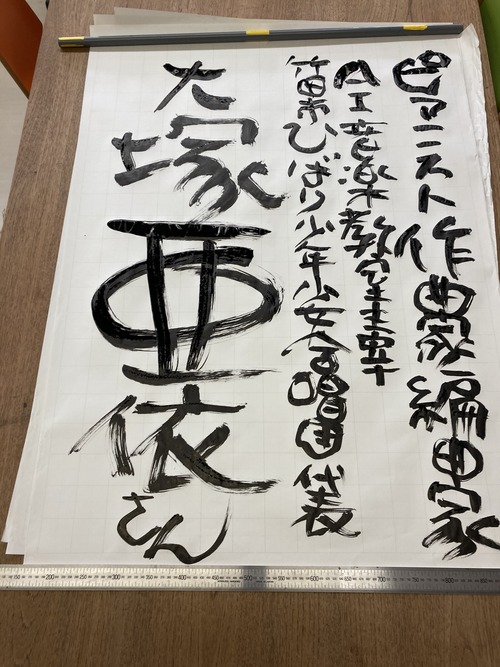 ピアニスト作曲家編曲家
AI音楽教室主宰
竹田市ひばり少年少女合唱団代表
大塚亜依さん